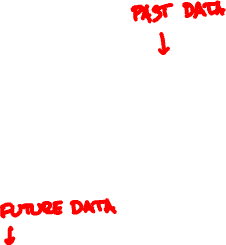 PAST DATA
FUTURE DATA